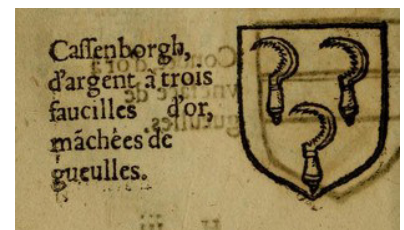 Caſſenborgh,
d'argent à trois
faucilles d'or,
mãchées de
gueulles.